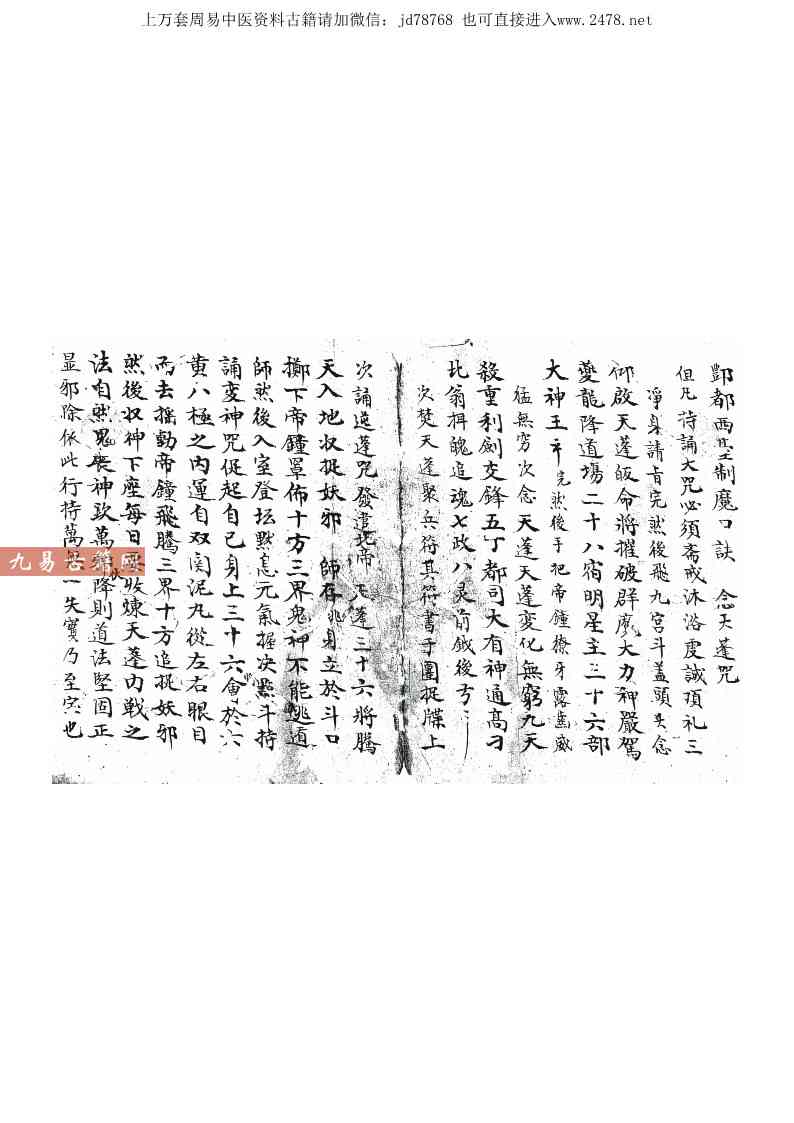 上万套周易中医资料古籍请加微信：jd78768 也可直接进入www.2478.net
酆都西臺制魔口訣 念天蓬咒
但凡持誦大咒必須斋戒沐浴虔誠頂礼三
淨身請旨完然後飛九宫斗盖頭頁念
仰啟天蓬皈命將摧破群魔大力神嚴駕
夔龍降道場二十八宿明星主三十六部
大神王 完然後手把帝鐘撩牙露齒威
猛無穷次念 天蓬天蓬變化無窮九天
殺童利劍交鋒五丁都司大有神通高刁
北翁 追魂七政八灵前鉞後
次焚天蓬聚兵符其符書于圍捉牒上
次誦 蓬咒發遣北帝 天蓬三十六將騰
天入地收捉妖邪 師存 身立於斗口
擲下帝鐘罩佈十方三界鬼神不能逃遁
師然後入室登坛黙息元氣握决 斗持
誦变神咒促起自己身上三十六會於六
黄八極之内運自双関泥九從左右眼目
而去揺動帝鐘飛騰三界十方追捉妖邪
然後收神下座每日 煉天蓬内戰之
法自然鬼 神 萬 降則道法堅固正
显邪除依此行持萬無一失寔乃至宝也
九易古籍网